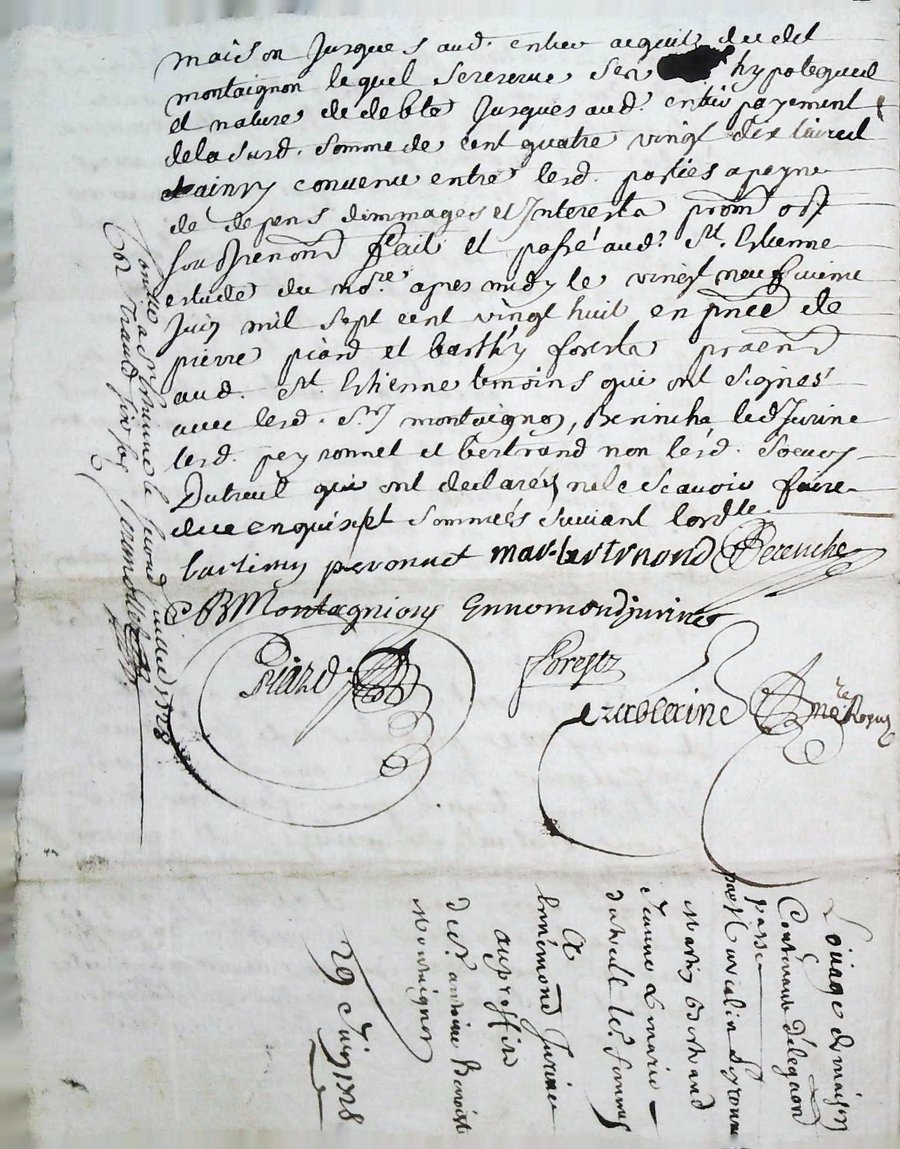 maison Jusques aud. entier acquitt dud.t
montaignon lequel sereserve ses hypoteques
et nature de debte Jusques aud.t entier payement
delasusd. somme de cent quatre vingt dix livres
et ainsy convenu entre lesd. parties apeyne
de depens dommages et Interests prom ob
sou Renon fait et passé aud.t St. Etienne
estude du no.re apres midy le vingt neufvieme
Juin mil sept cent vingt huit, en pnce de
pierre piard et barth'y forests praticiens
aud. St Etienne temoins qui ont signes
avec lesd. Srs montaignon, Berincha led Jurine
lesd. peyronnet et bertrand non lesd. Soeurs
Dutreuil qui ont declarés nele scavoir faire
de ce enquis et sommés suivant lordce.
peronnet mar bertrnond Berinche
B Montagnion Ennemond jurine
Piard
Forests
Nore Royal
Controllé a St Etienne le second Juillet 1728
Louage de maison
Contenant délegaon
passé
par Marcelin Peyronne
Martin Bertrand
Jeanne & marie
dutreuil les femmes
A
Ennemond Jurine
au proffit
de Sr antoine Benoist
Montaignon
29 Juin 1728